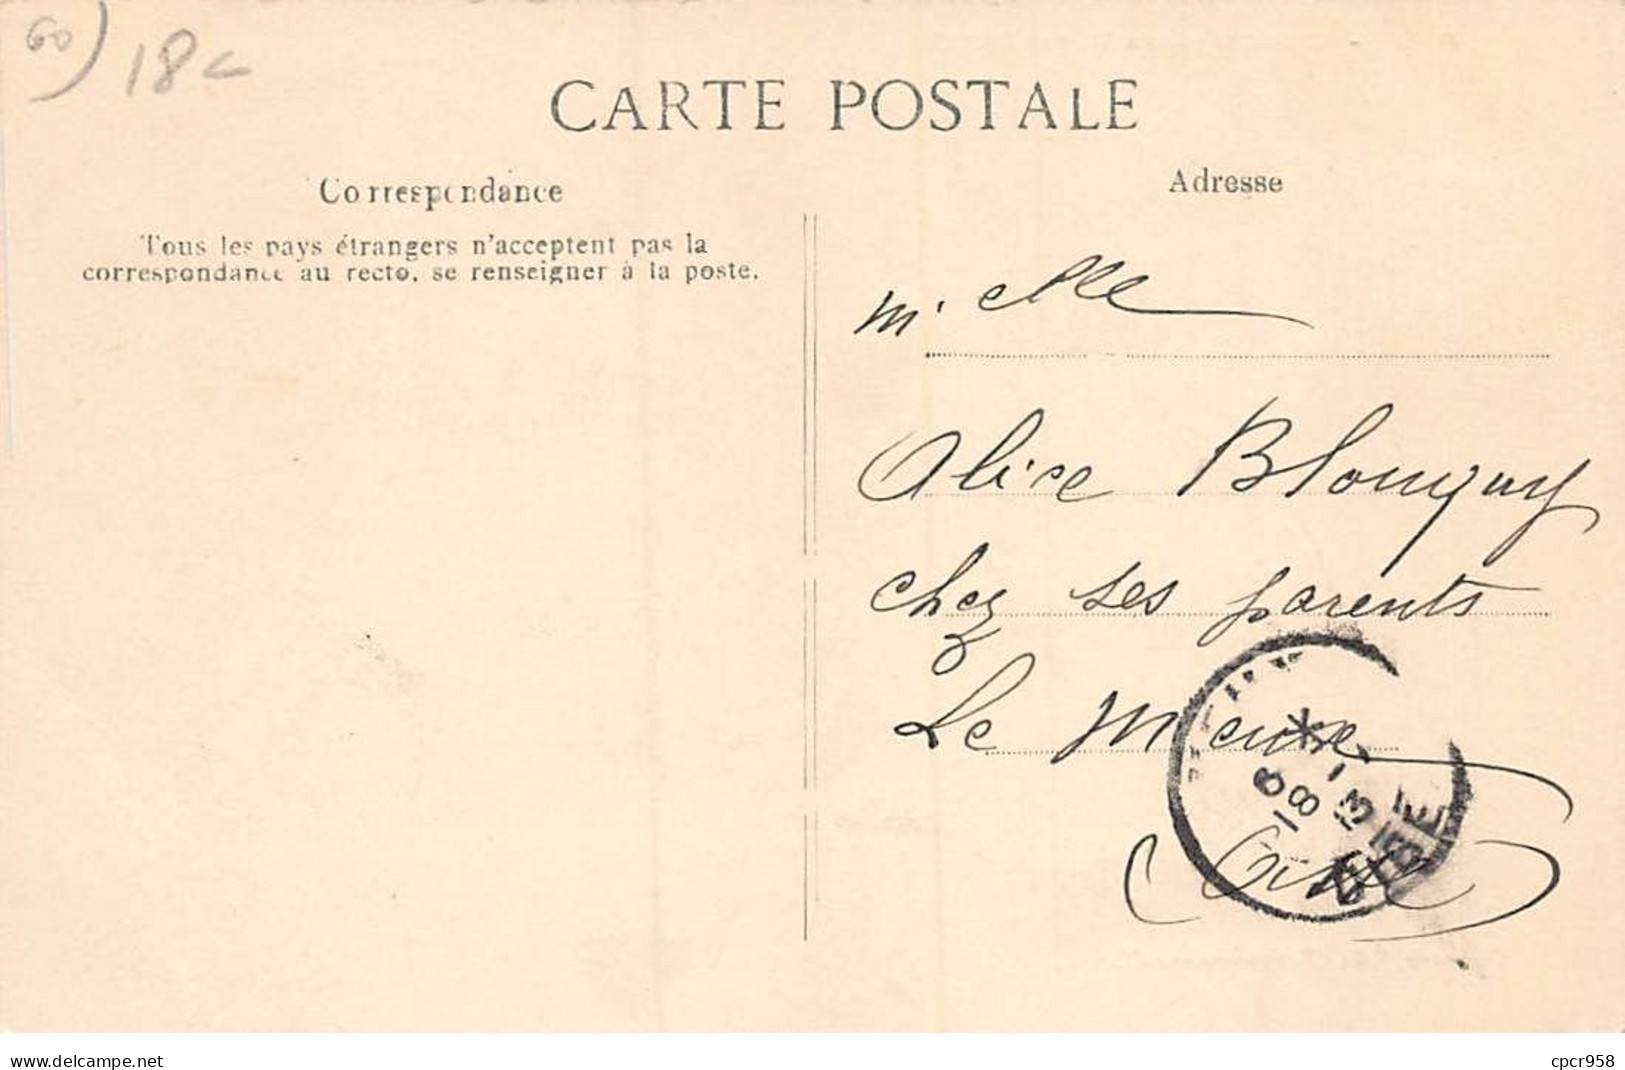 60) 18c
CARTE POSTALE
Correspondance
Tous les pays étrangers n'acceptent pas la
correspondance au recto, se renseigner à la poste.
Adresse
M'elle
Alice Blougny
chez ses parents
Le Meux
Oise
* 
18 - 8
13
OISE
www.delcampe.net
cpcr958